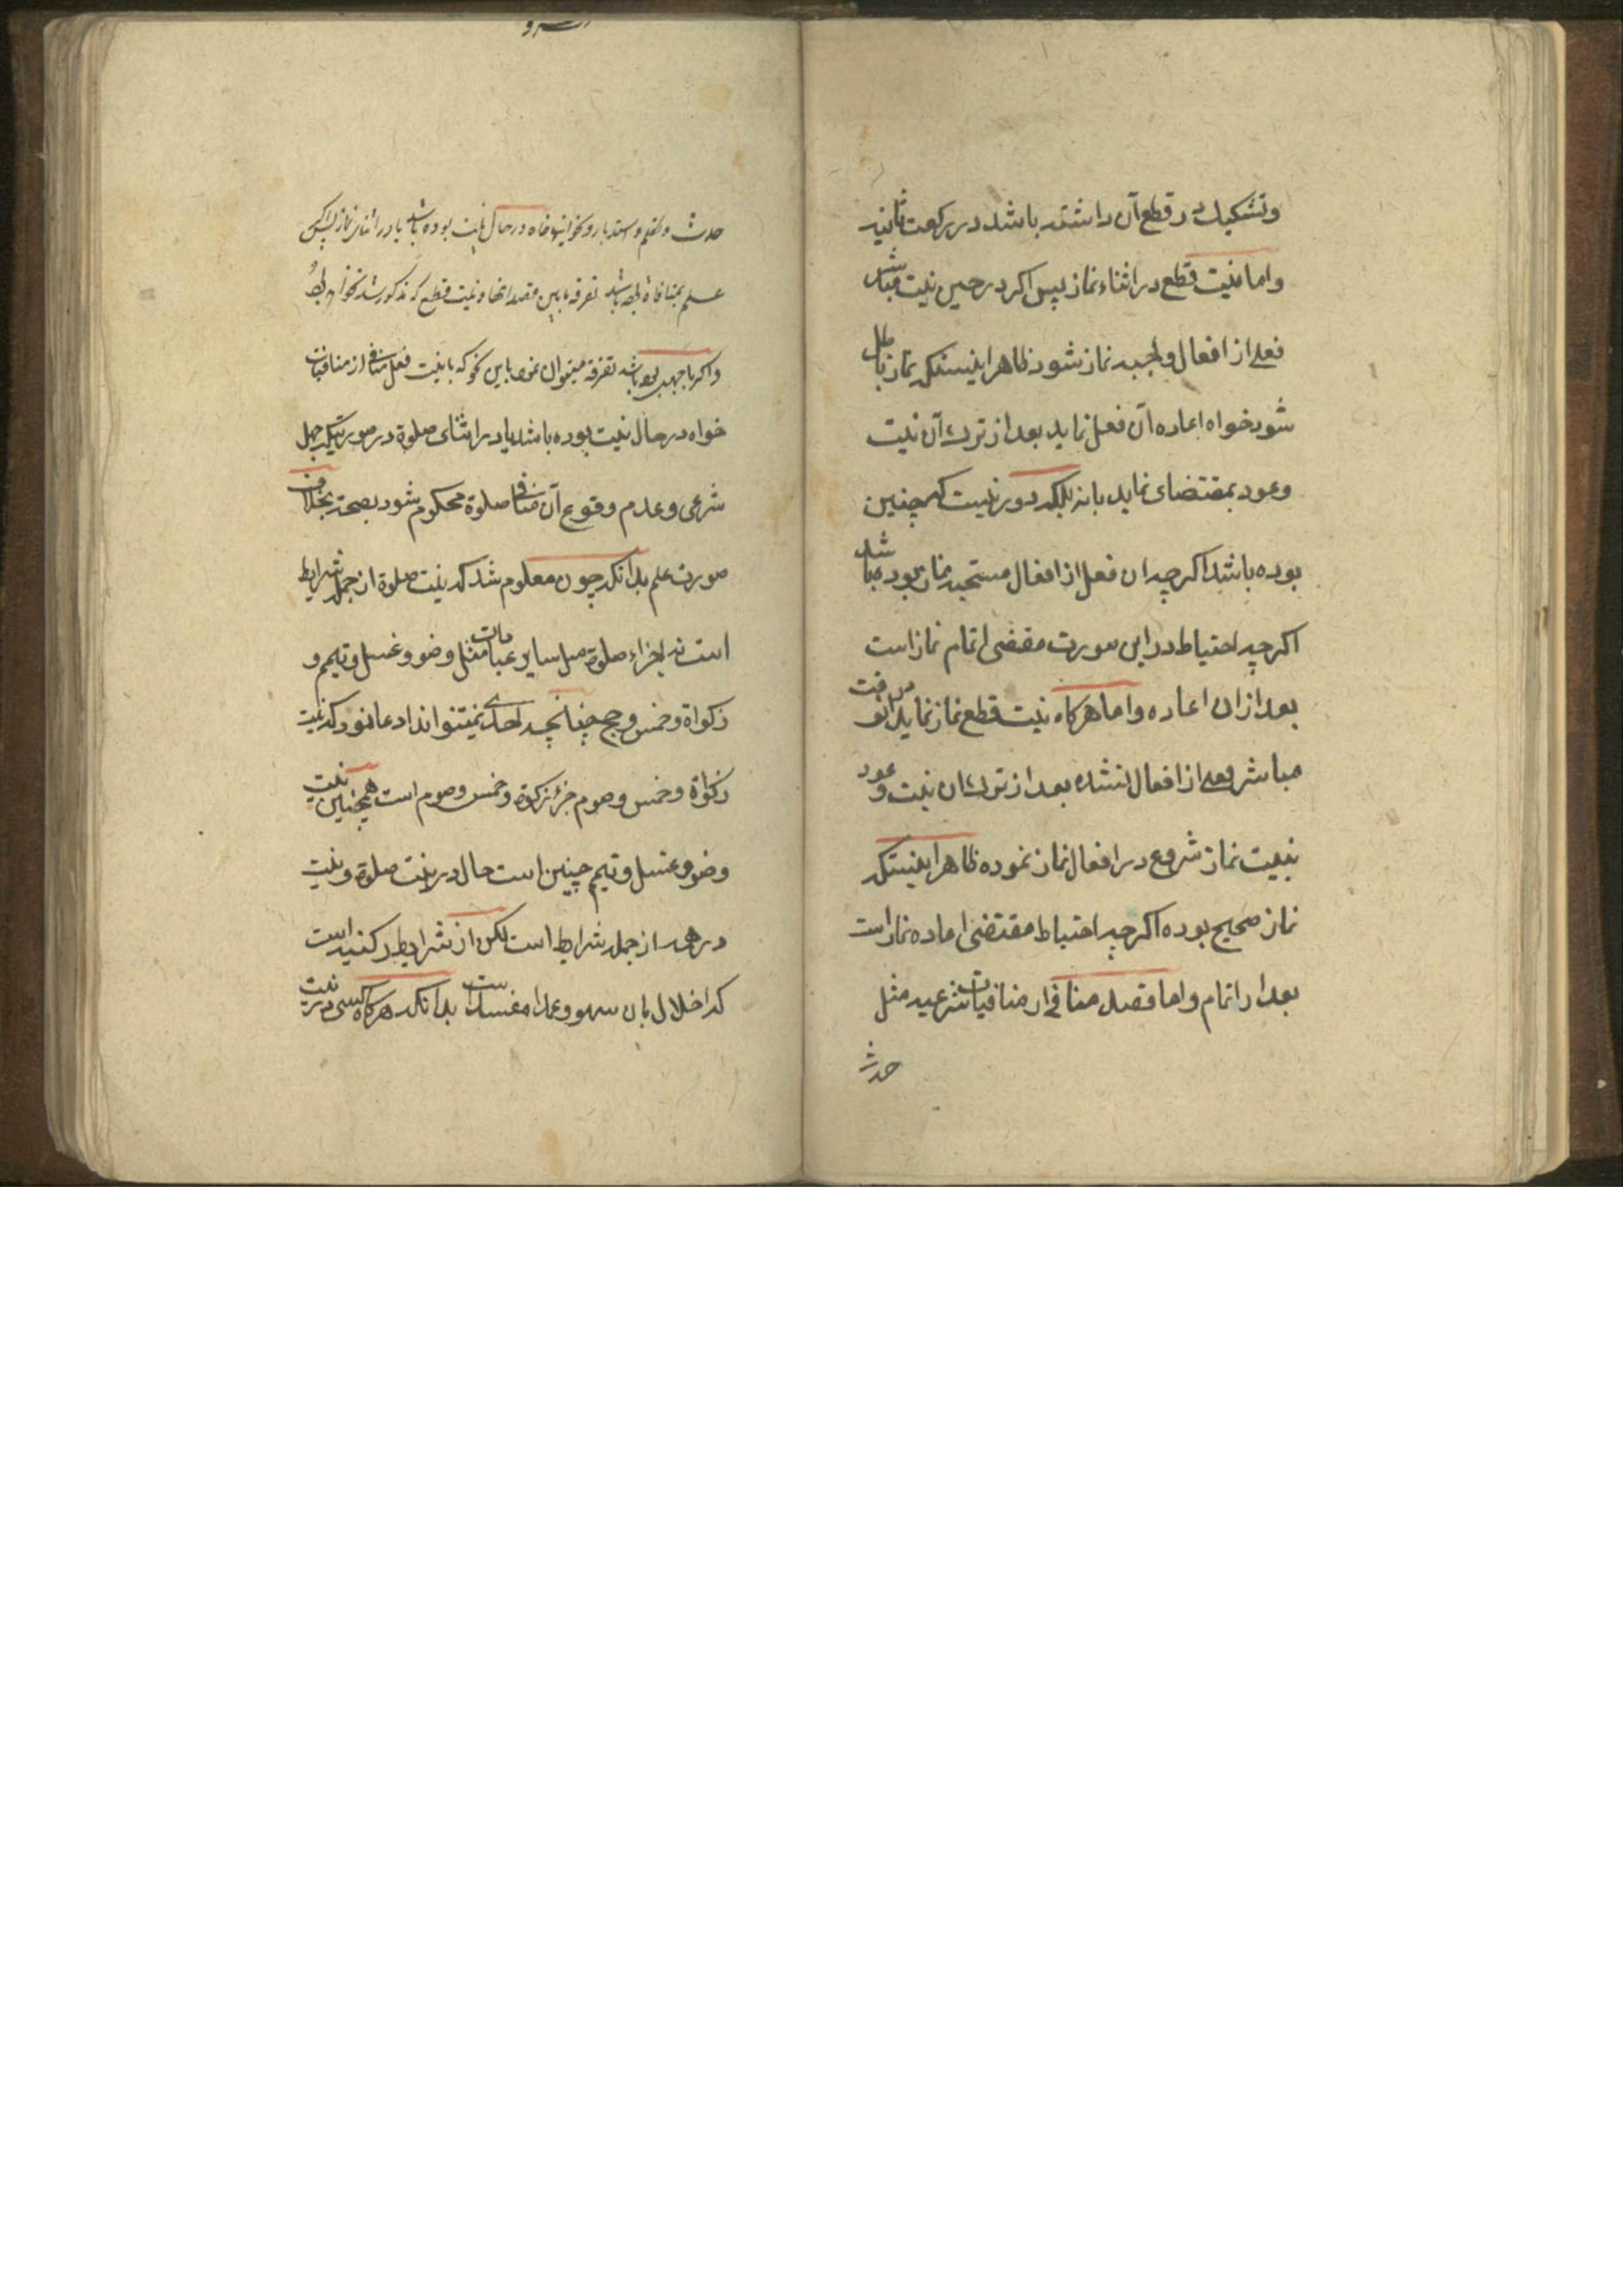 وتشکیک در قطع آن داشته باشد در رکعت ثانیه
واما نیت قطع در اثناء نماز پس اکر در حین نیت مباشر
فعلی از افعال واجبه نماز شود ظاهر اینستکه نماز باطل
شود خواه اعاده آن فعل نماید بعد از ترک آن نیت
وعود بمقتضای نماید یا نه بلکه دور نیست که چنین
بوده باشد اکر چه ان فعل از افعال مستحبه نماز بوده باشد
اکر چه احتیاط در این صورت مقتضی اتمام نماز است
بعد از ان اعاده واما هرکاه نیت قطع نماز نماید در آنوقت
مباشر فعلی از افعال نشده بعد از ترک ان نیت وعود
بنیت نماز شروع در افعال نماز نموده ظاهر اینستکه
نماز صحیح بوده اکر چه احتیاط مقتضی اعاده نماز است
بعد از اتمام واما قصد منافی از منافیات شرعیه مثل
حدث
حدث وتکلم واستدبار ونحو اینها خواه در حال نیت بوده باشد یا در اثنای نماز پس اکر
علم بمنافاة داشته باشد تفرقه مابین قصد اینها ونیت قطع که مذکور شد نخواهد بود
واکر با جهل بوده باشد تفرقه میتوان نمود باین نحو که با نیت فعل منافی از منافیات
خواه در حال نیت بوده باشد یا در اثنای صلوة در صورتیکه جهل
شرعی وعدم وقوع آن منافی صلوة محکوم شود بصحة بخلاف
صورت علم بدانکه چون معلوم شد که نیت صلوة از جمله شرایط
است نه اجزاء صلوة مثل سایر عبادات مثل وضو وغسل وتیمم و
زکواة وخمس وحج چنانچه احدی نمیتواند ادعا نمود که نیت
زکواة وخمس وصوم جزء زکوة وخمس وصوم است همچنین نیت
وضو وغسل وتیمم چنین است حال در نیت صلوة ونیت
در همه از جمله شرایط است لکن از شرایط رکنیه است
که اخلال بان سهوا وعمدا مفسد است بدانکه هرکاه کسی در نیت